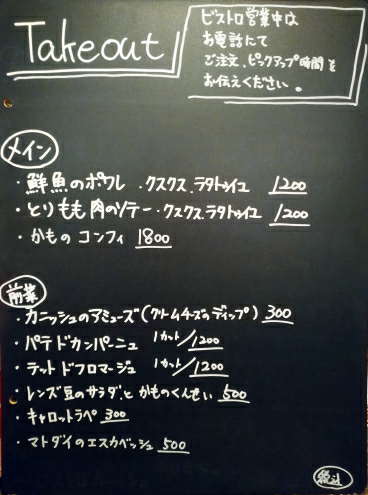 Takeout
ビストロ営業中は
お電話にて
ご注文、ピックアップ時間を
お伝えください。
メイン
・鮮魚のポワレ ・クスクス、ラタトゥイユ 1200
・とりもも肉のソテー・クスクス、ラタトゥイユ 1200
・かもの コンフィ 1800
前菜
・カニッシュのアミューズ(クリームチーズのディップ) 300
・パテ ド カンパーニュ 1カット/1200
・テット ド フロマージュ 1カット/1200
・レンズ豆のサラダ、と かものくんせい 500
・キャロットラペ 300
・マトダイのエスカベッシュ 500
税込